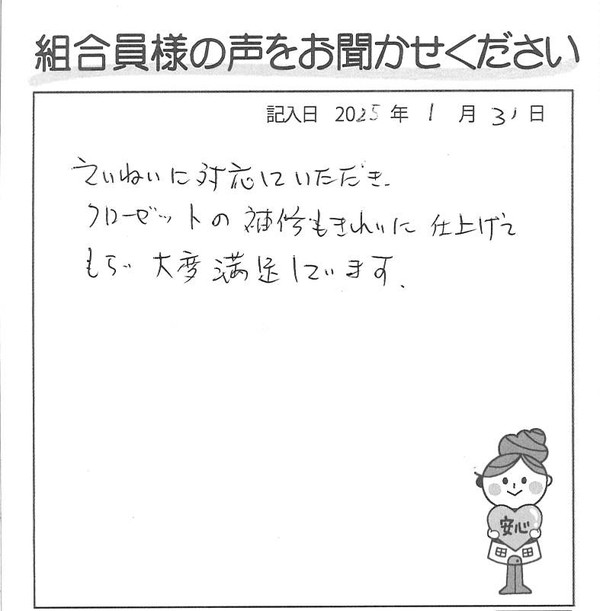 組合員様の声をお聞かせください
記入日 2025年 1月 31日
ていねいに対応していただき、
クローゼットの補修もきれいに仕上げて
もらい大変満足しています。
安心